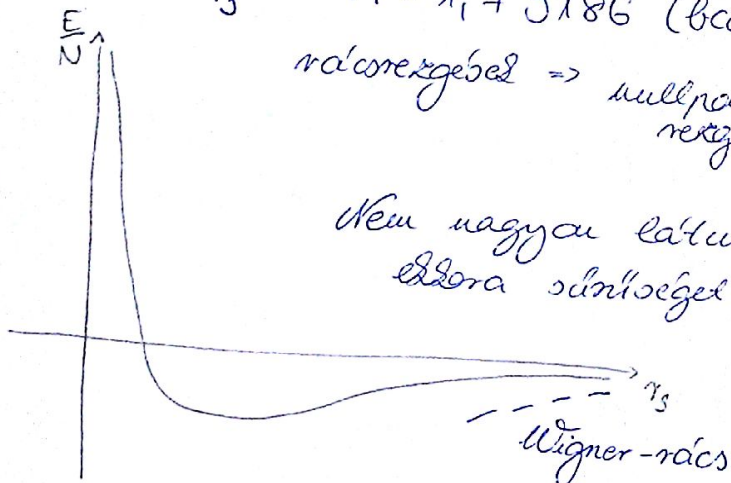 1,79186 (bcc
E/N
rácsrezgések => nullpo
rezg
Nem nagyon látu
ekkora sűrűséget
r_s
Wigner-rács